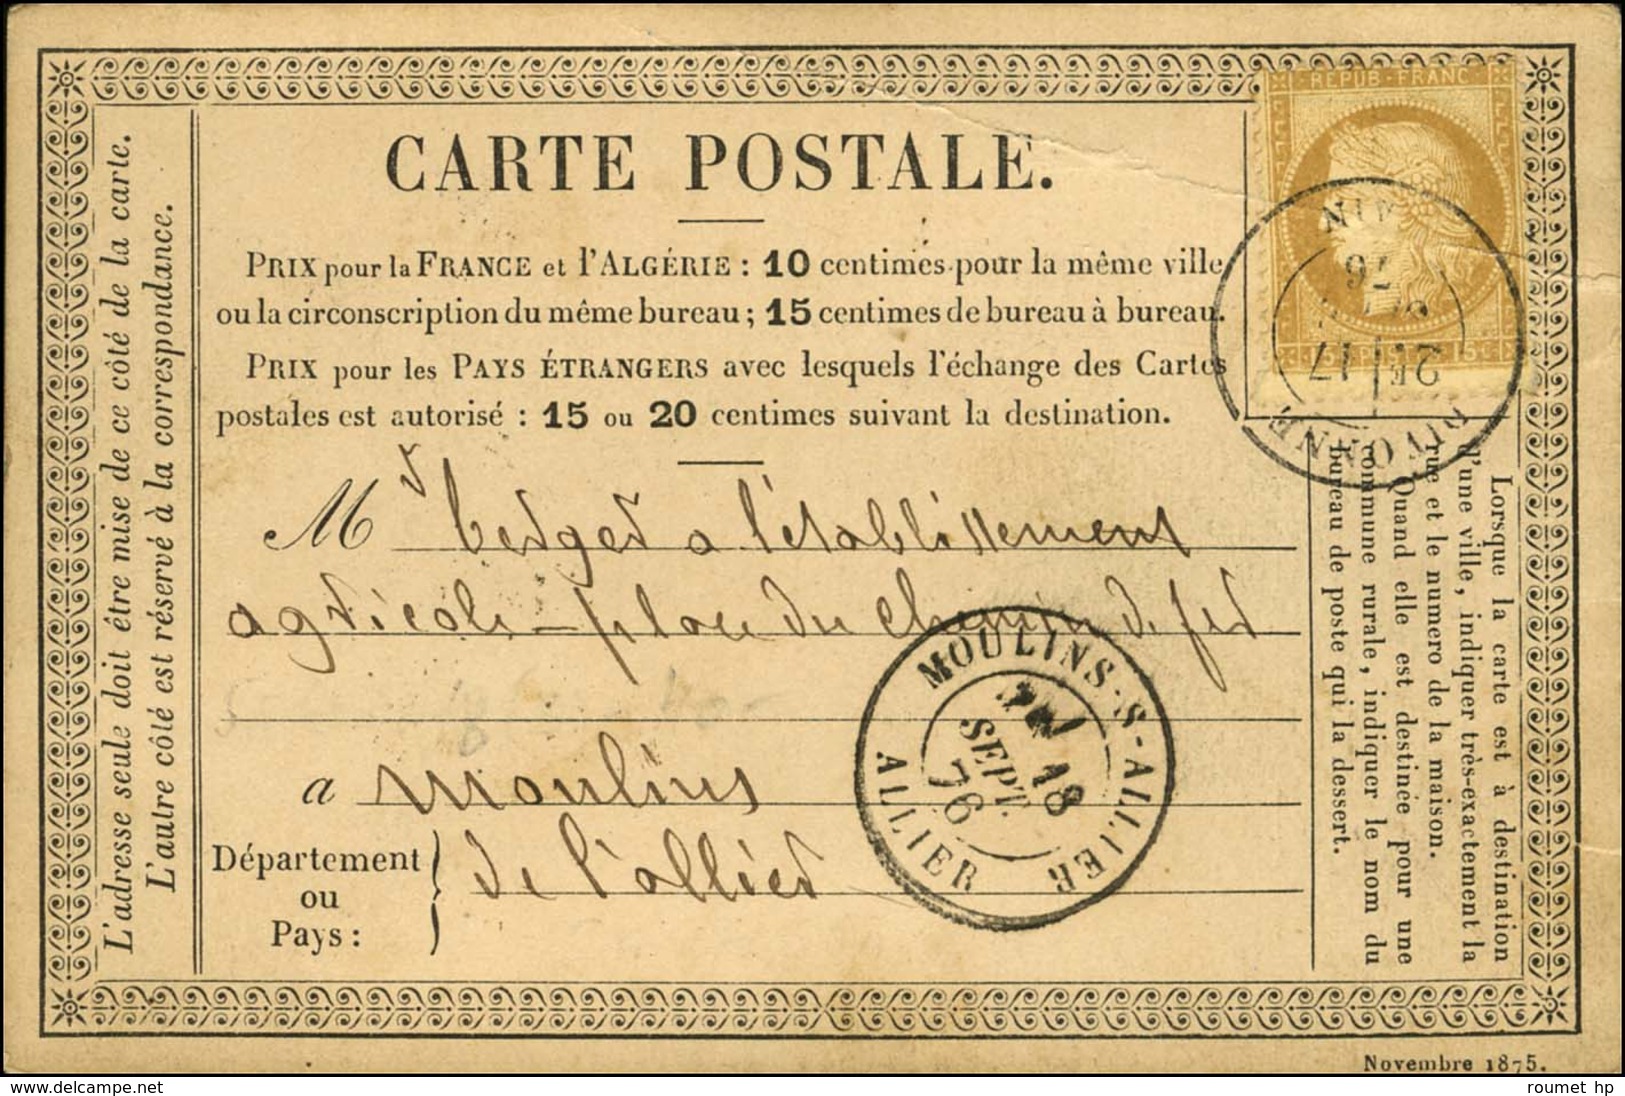 CARTE POSTALE.
PRIX pour la FRANCE et l'ALGÉRIE : 10 centimes pour la même ville
ou la circonscription du même bureau ; 15 centimes de bureau à bureau.
PRIX pour les PAYS ÉTRANGERS avec lesquels l'échange des Cartes
postales est autorisé : 15 ou 20 centimes suivant la destination.
Mr Verger a l'etablissement
agricole - place du chemin de fer
a moulins
Département
ou
Pays :
de l'allier
L'adresse seule doit être mise de ce côté de la carte.
L'autre côté est réservé à la correspondance.
Lorsque la carte est à destination
d'une ville, indiquer très-exactement la
rue et le numero de la maison.
Quand elle est destinée pour une
commune rurale, indiquer le nom du
bureau de poste qui la dessert.
REPUB·FRANC
17
76
MOULINS-S-ALLIER
18
SEPT.
76
ALLIER
Novembre 1875.
www.delcampe.net
roumet hp